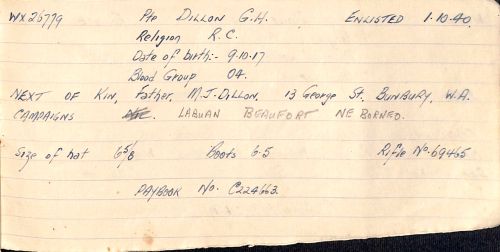 WX26779 Pte DILLON G.H. ENLISTED 1.10.40.
Religion R.C.
Date of birth:- 9.10.17
Blood Group O4.
NEXT OF KIN, Father, M.J. DILLON. 13 George St. BUNBURY, W.A.
CAMPAIGNS LABUAN BEAUFORT NE BORNEO.
Size of hat 6⅝ Boots 6.5 Rifle No. 69465
PAYBOOK No. C224663.